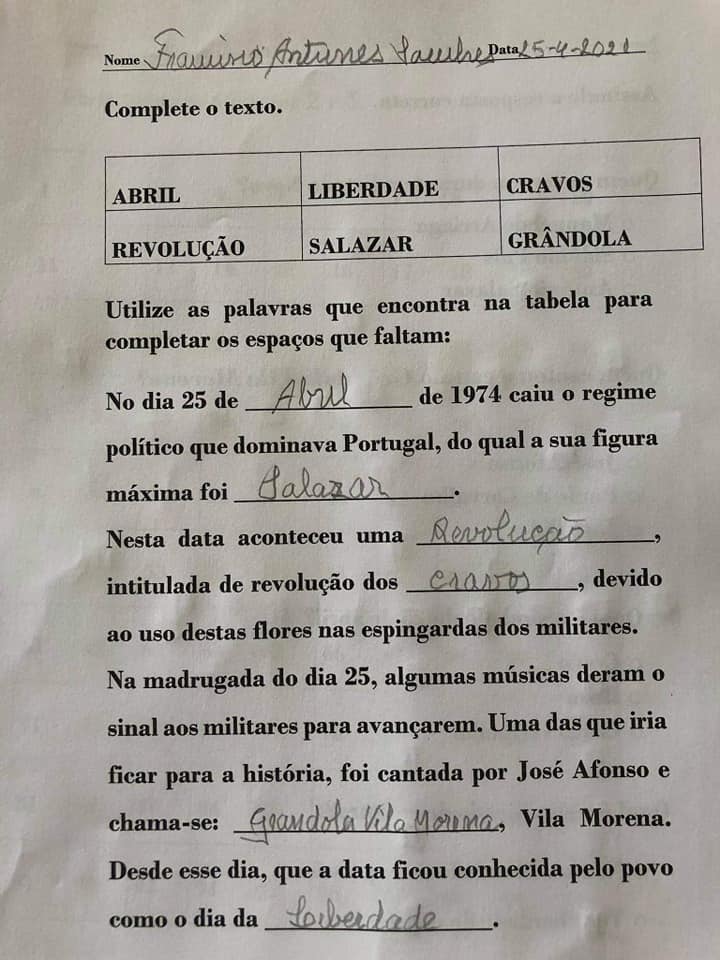 Nome Francisco Antunes Data 25-4-2021
Complete o texto.
ABRIL LIBERDADE CRAVOS
REVOLUÇÃO SALAZAR GRÂNDOLA
Utilize as palavras que encontra na tabela para
completar os espaços que faltam:
No dia 25 de Abril de 1974 caiu o regime
político que dominava Portugal, do qual a sua figura
máxima foi Salazar.
Nesta data aconteceu uma Revolução,
intitulada de revolução dos cravos, devido
ao uso destas flores nas espingardas dos militares.
Na madrugada do dia 25, algumas músicas deram o
sinal aos militares para avançarem. Uma das que iria
ficar para a história, foi cantada por José Afonso e
chama-se: Grandola Vila Morena, Vila Morena.
Desde esse dia, que a data ficou conhecida pelo povo
como o dia da Liberdade.